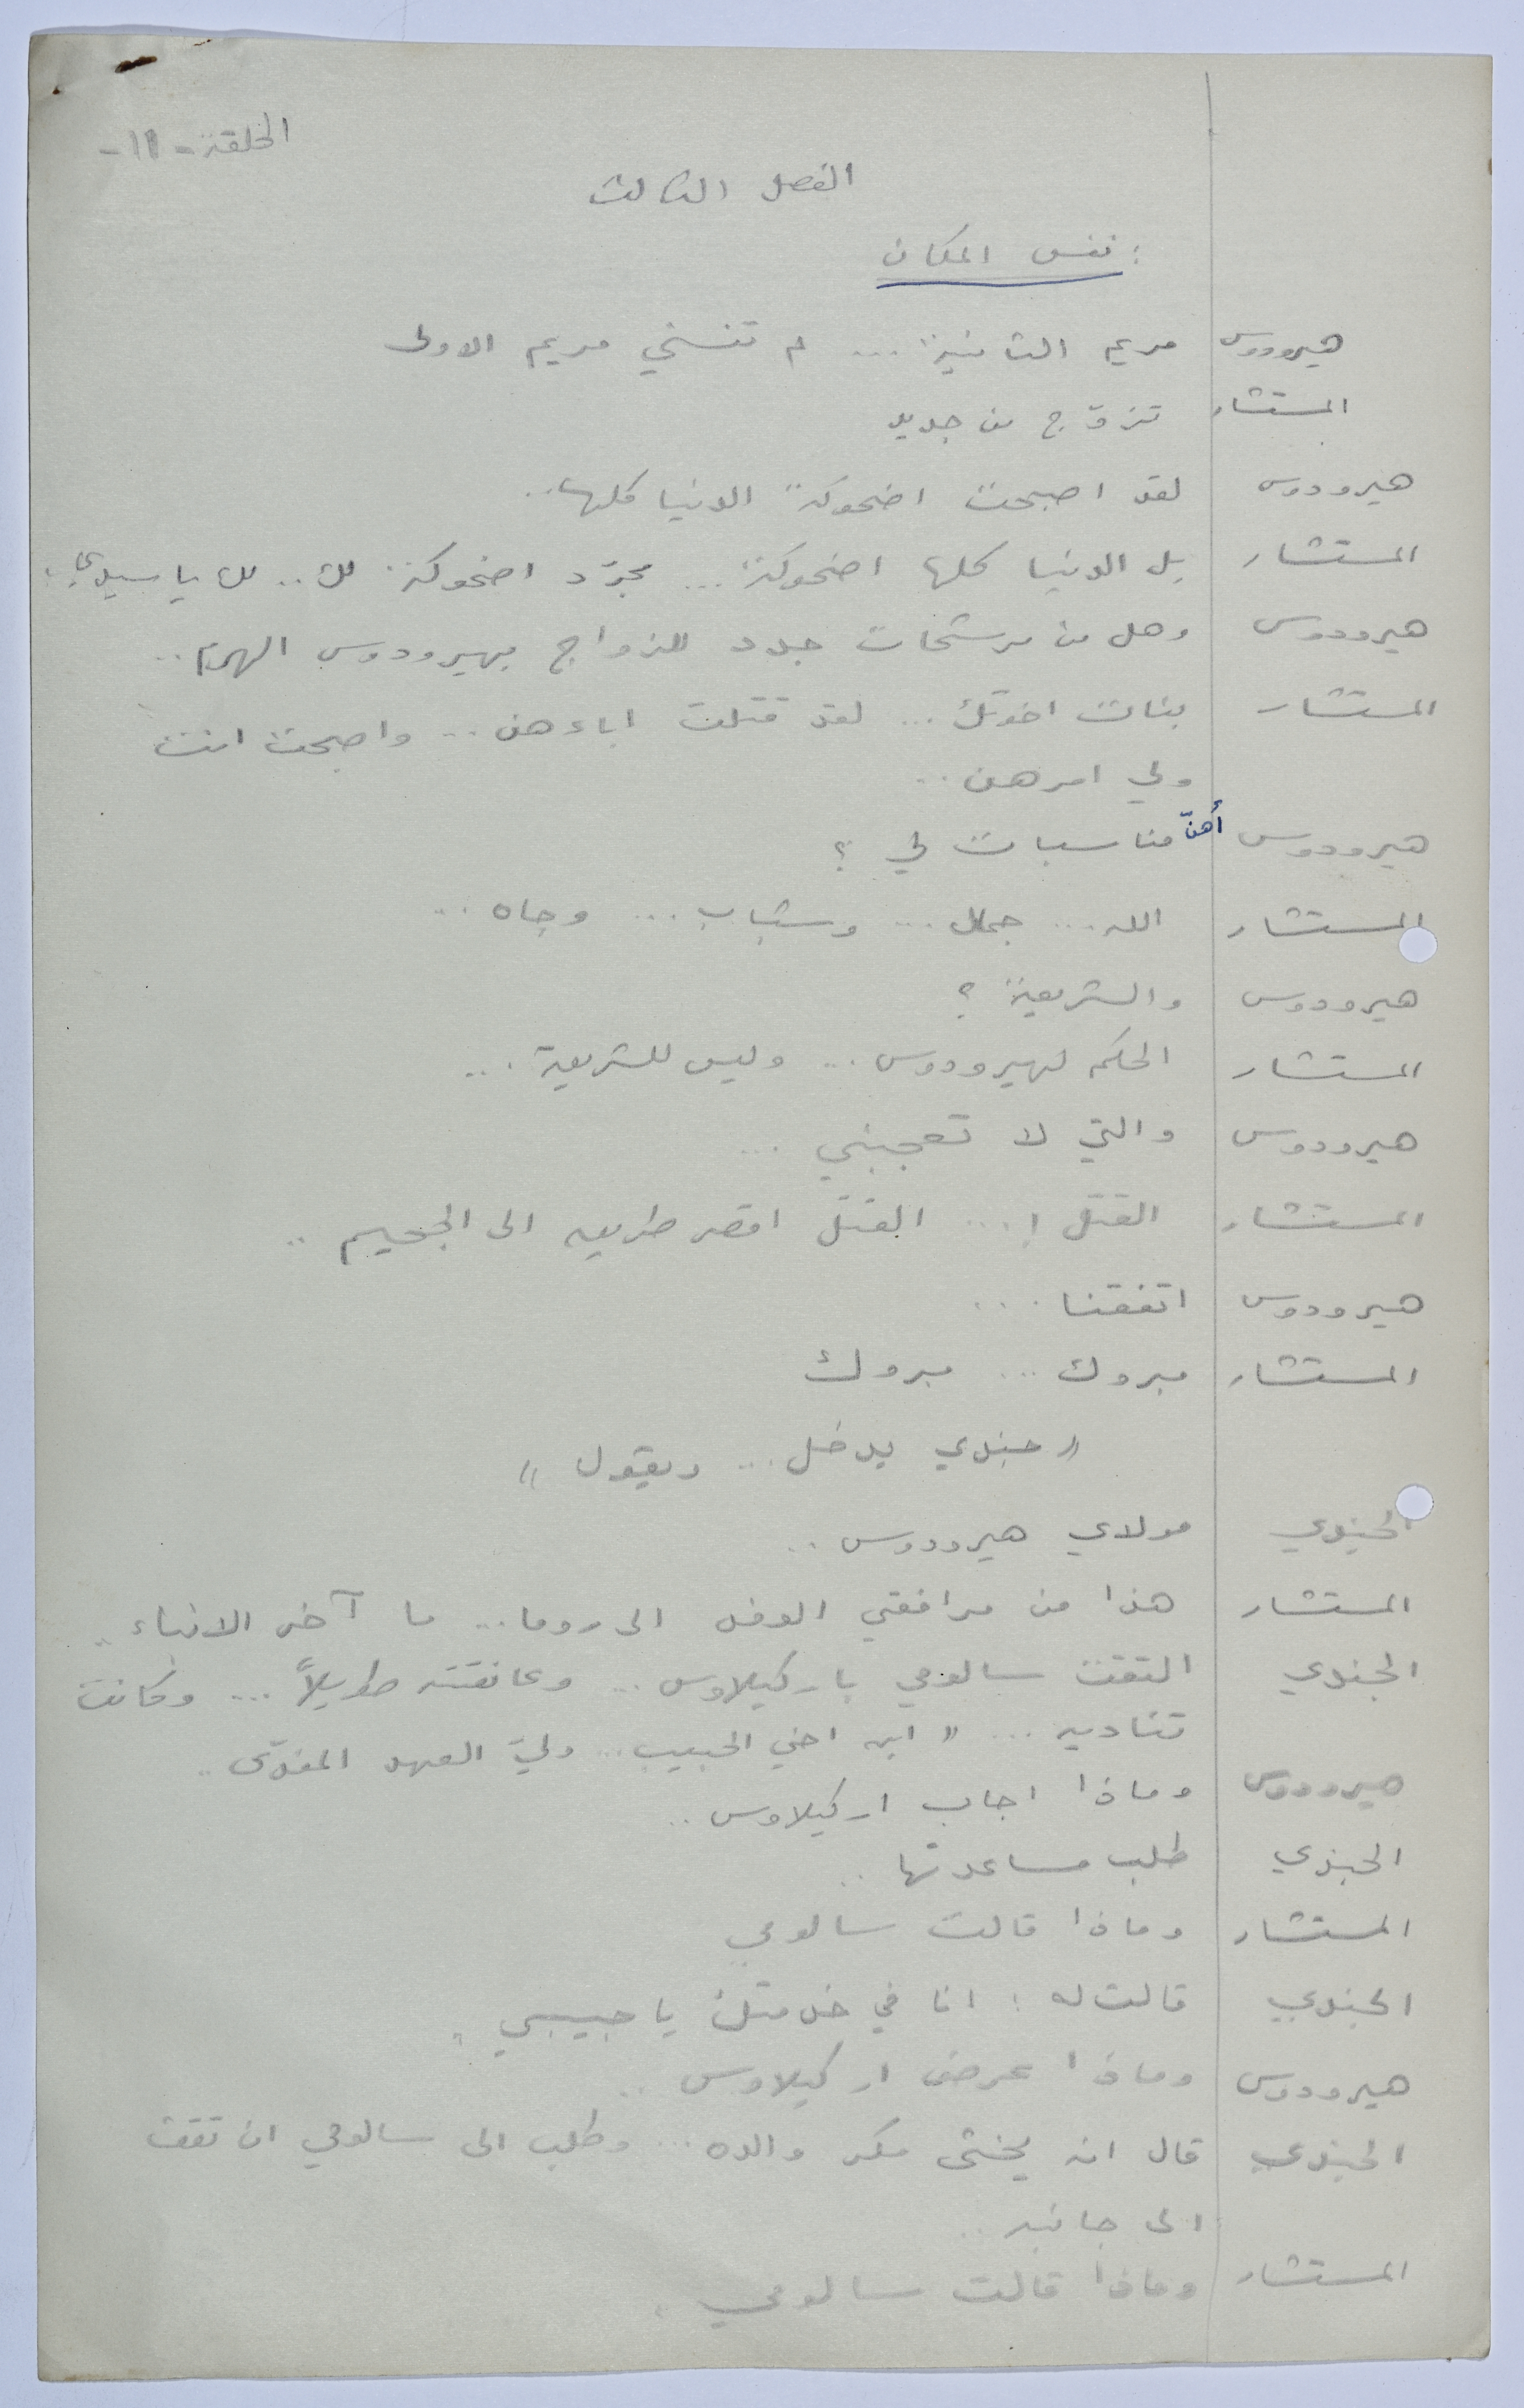 الحلقة - ١١ -
الفصل الثالث
: نفس المكان
هيرودوس مريم الثانية ... لم تنسني مريم الاولى
المستشار تزوّج من جديد
هيرودوس لقد اصبحت اضحوكة الدنيا كلها ..
المستشار بل الدنيا كلها اضحوكة ... مجرّد اضحوكة لك .. لك يا سيدي
هيرودوس وهل من مرشحات جدد للزواج بهيرودوس الهرم ..
المستشار بنات اخوتك ... لقد قتلت اباءهن .. واصبحت انت
ولي امرهن ..
هيرودوس أهنّ مناسبات لي ؟
المستشار الله ... جمال ... وشباب ... وجاه ...
هيرودوس والشريعة ؟
المستشار الحكم لهيرودوس ... وليس للشريعة ...
هيرودوس والتي لا تعجبني ...
المستشار القتل ! ... القتل اقصر طريق الى الجحيم ..
هيرودوس اتفقنا ...
المستشار مبروك ... مبروك
" جندي يدخل ... ويقول "
الجندي مولاي هيرودوس ..
المستشار هذا من مرافقي الوفد الى روما ... ما آخر الانباء ..
الجندي التقت سالومي باركيلاوس ... وعانقته طويلاً ... وكانت
تناديه ... " ابن اخي الحبيب ... وليّ العهد المفدّى ..
هيرودوس وماذا اجاب اركيلاوس ..
الجندي طلب مساعدتها ..
المستشار وماذا قالت سالومي
الجندي قالت له : انا في خدمتك يا حبيبي .
هيرودوس وماذا عرض اركيلاوس ..
الجندي قال انه يخشى مكر والده ... وطلب الى سالومي ان تقف
الى جانبه ..
المستشار وماذا قالت سالومي .